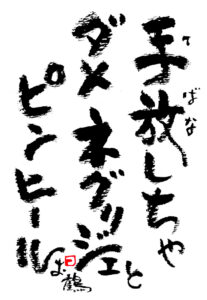 手放しちゃ
てばな
ダメ ネグリジェと
ピンヒール